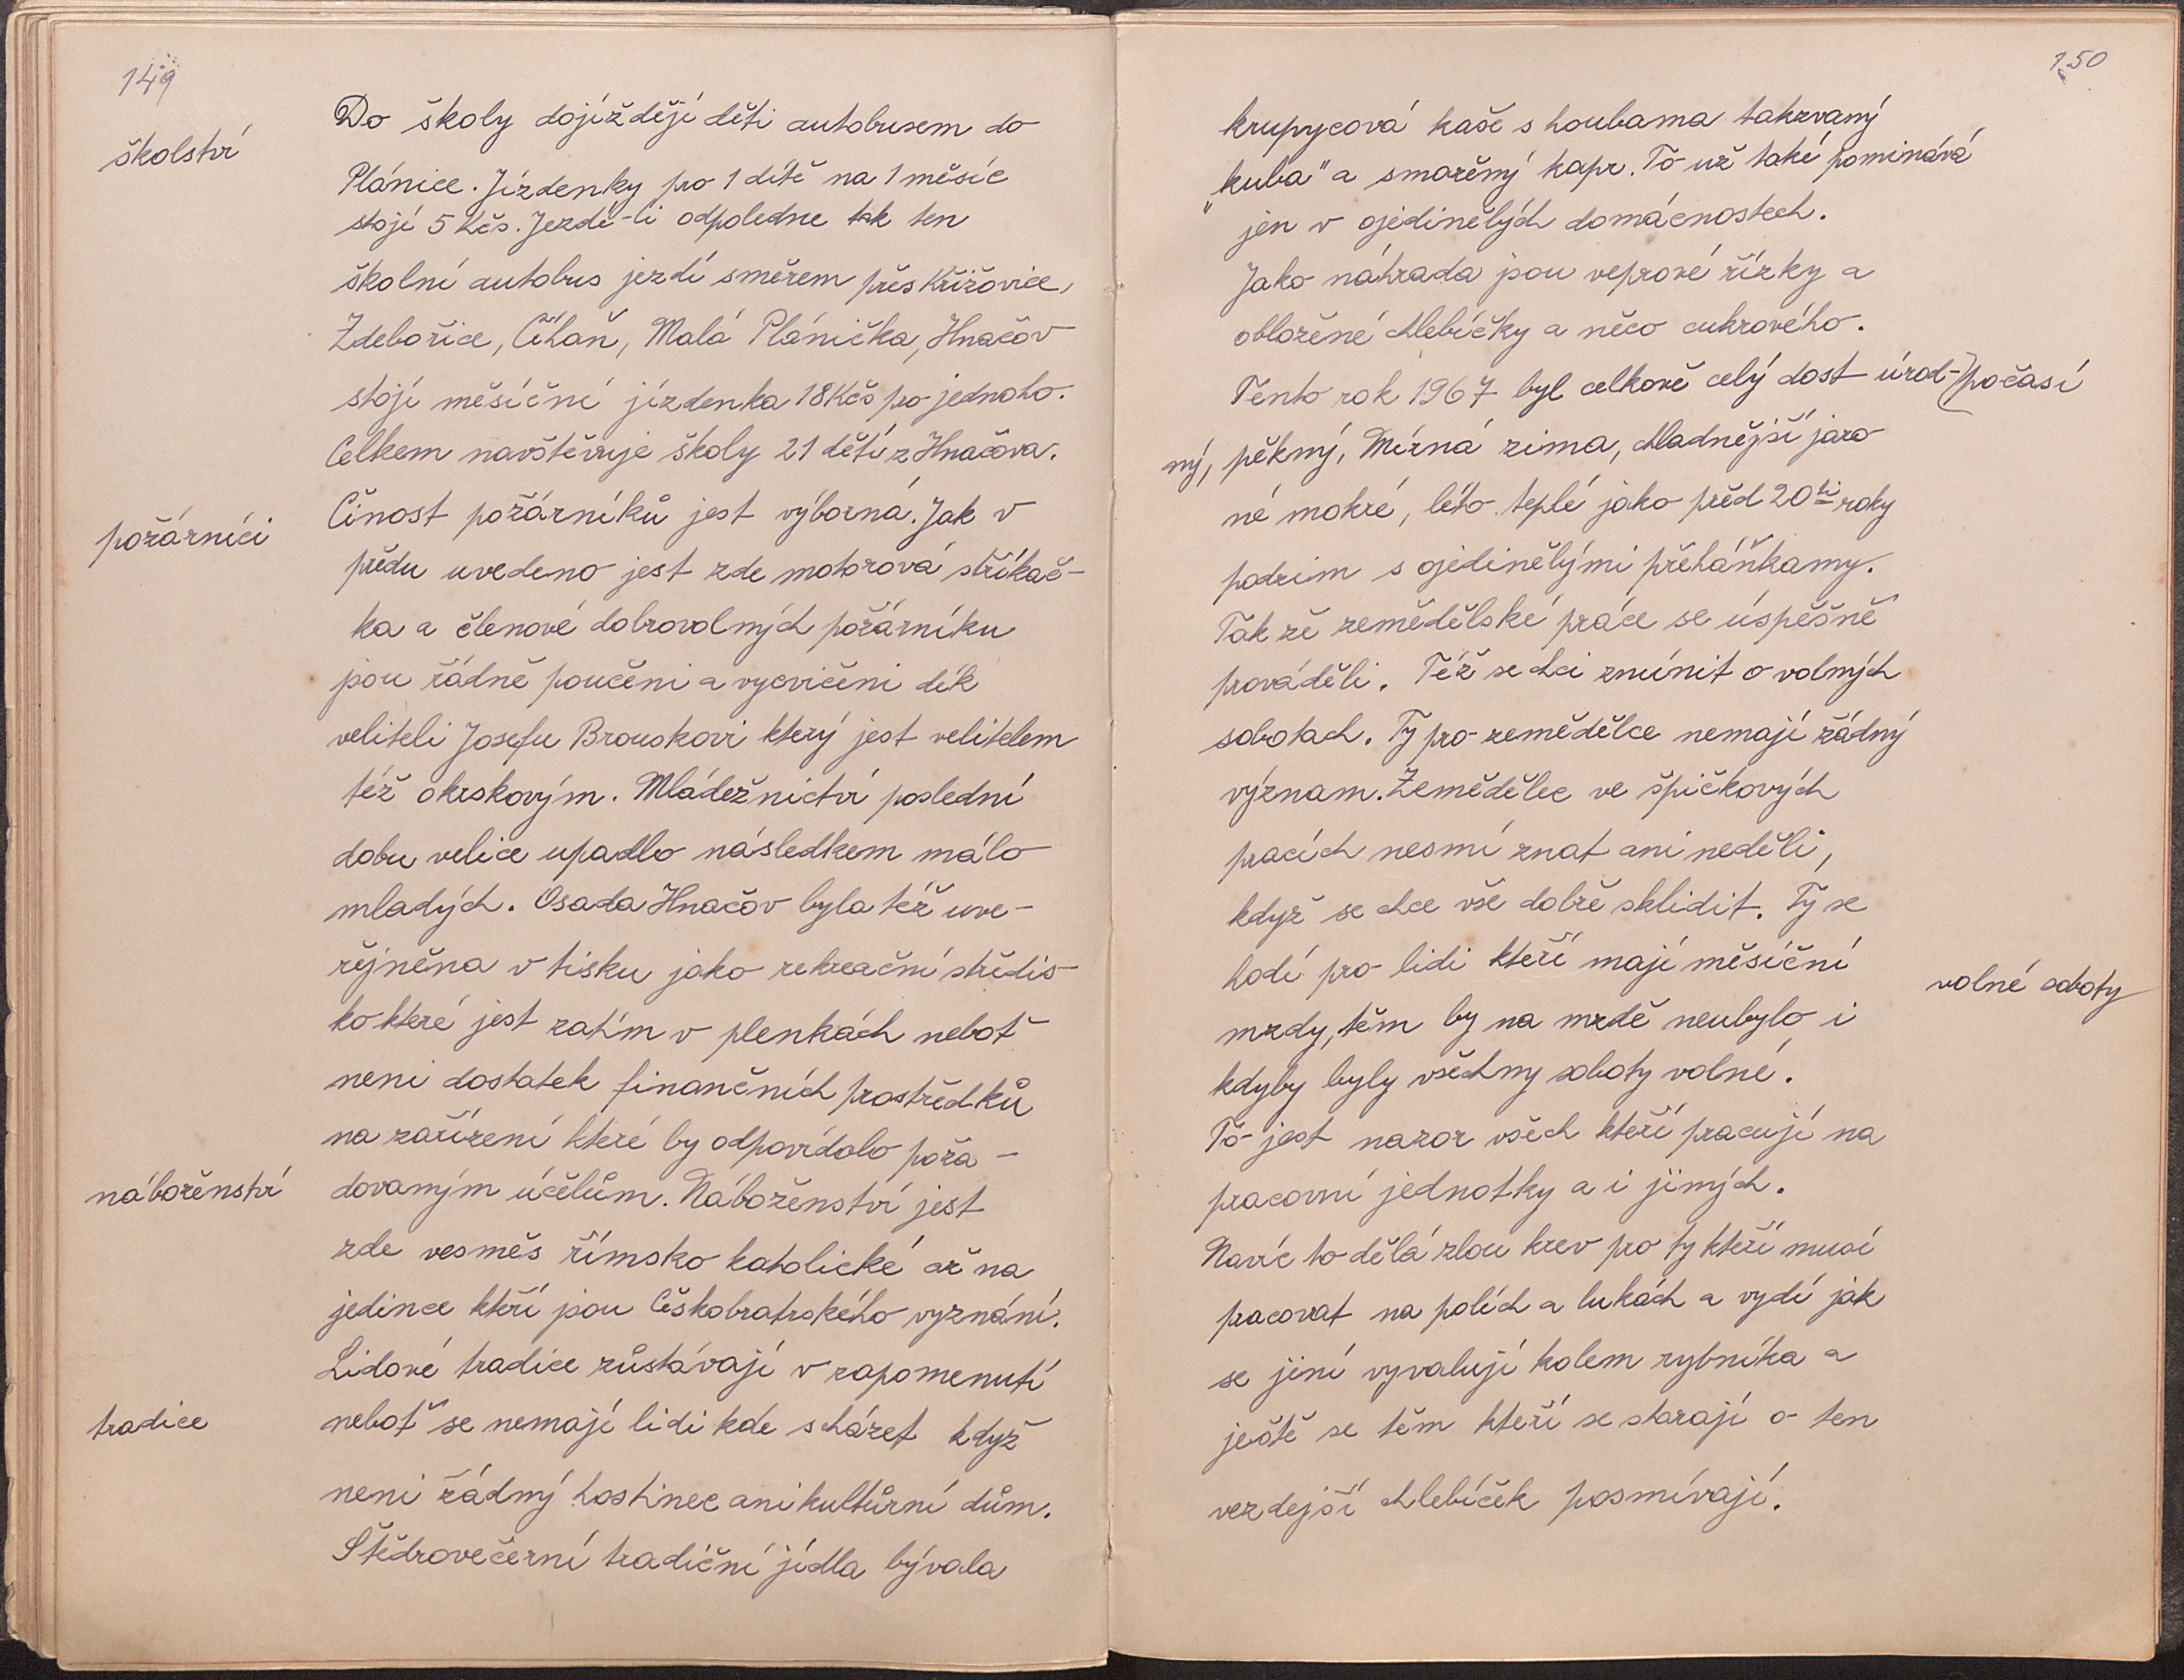 149
školství
Do školy dojíždějí děti autobusem do
Plánice. Jízdenky pro 1 dítě na 1 měsíc
stojí 5 Kčs. Jezdí-li odpoledne tak ten
školní autobus jezdí směrem přes Křižovice,
Zdebořice, Číhaň, Malá Plánička, Hnačov
stojí měsíční jízdenka 18 Kčs pro jednoho.
Celkem navštěvuje školy 21 dětí z Hnačova.
požárníci
Činost požárníků jest výborná. Jak v
předu uvedeno jest zde motorová stříkač-
ka a členové dobrovolných požárníku
jsou řádně poučeni a vycvičeni dík
veliteli Josefu Brouskovi který jest velitelem
též okrskovým. Mládežnictví poslední
dobu velice upadlo následkem málo
mladých. Osada Hnačov byla též uve-
řejněna v tisku jako rekreační středis-
ko které jest zatím v plenkách neboť
neni dostatek finančních prostředků
na zařízení které by odpovídalo poža-
náboženství
dovaným účelům. Náboženství jest
zde vesměs římsko katolické až na
jedince kteří jsou Českobratrského vyznání.
Lidové tradice zůstávají v zapomenutí
tradice
neboť se nemají lidi kde scházet když
neni řádný hostinec ani kultůrní dům.
Štědrovečerní tradiční jídla bývala
150
krupycová kaše s houbama takzvaný
„kuba" a smažený kapr. To už také pominává
jen v ojedinělých domácnostech.
Jako náhrada jsou vepřové řízky a
obložené chlebíčky a něco cukrového.
Tento rok 1967 byl celkově celý dost úrod-
počasí
ný, pěkný, Mírná zima, chladnější jaro
né mokré, léto teplé jako před 20ti roky
podzim s ojedinělými přeháňkamy.
Tak že zemědělské práce se úspěšně
prováděli. Též se chci zmínit o volných
sobotach. Ty pro zemědělce nemají žádný
význam. Zemědělec ve špičkových
pracích nesmí znat ani neděli,
když se chce vše dobře sklidit. Ty se
hodí pro lidi kteří mají měsíční
volné soboty
mzdy, těm by na mzdě neubylo i
kdyby byly všechny soboty volné.
To jest nazor všech kteří pracují na
pracovní jednotky a i jiných.
Navíc to dělá zlou krev pro ty kteří musí
pracovat na polích a lukách a vydí jak
se jiní vyvalují kolem rybníka a
ještě se těm kteří se starají o ten
vezdejší chlebíček posmívají.